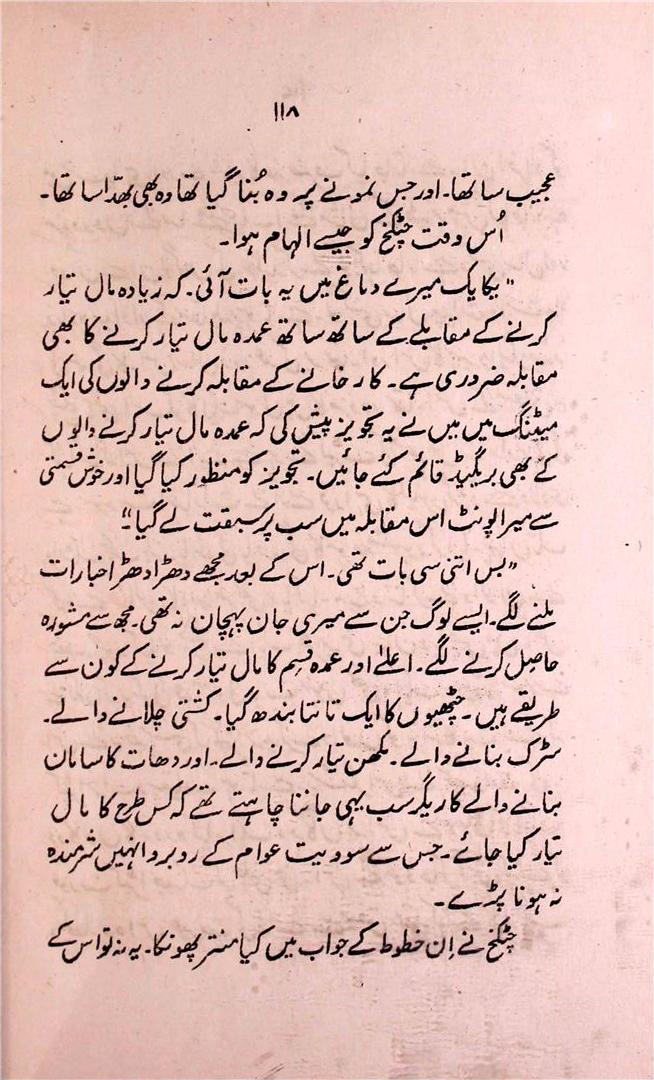 ۱۱۸
عجیب سا تھا۔ اور جس نمونے پر وہ بُنا گیا تھا وہ بھی بھدّا سا تھا۔
اُس وقت چٹکخ کو جیسے الہام ہوا۔
"یکایک میرے دماغ میں یہ بات آئی۔ کہ زیادہ مال تیار
کرنے کے مقابلے کے ساتھ ساتھ عمدہ مال تیار کرنے کا بھی
مقابلہ ضروری ہے۔ کارخانے کے مقابلہ کرنے والوں کی ایک
میٹنگ میں میں نے یہ تجویز پیش کی کہ عمدہ مال تیار کرنے والوں
کے بھی بریگیڈ قائم کئے جائیں۔ تجویز کو منظور کیا گیا اور خوش قسمتی
سے میرا یونٹ اس مقابلہ میں سب پر سبقت لے گیا"۔
"بس اتنی سی بات تھی۔ اس کے بعد مجھے دھڑا دھڑ اخبارات
ملنے لگے۔ ایسے لوگ جن سے میری جان پہچان نہ تھی۔ مجھ سے مشورہ
حاصل کرنے لگے۔ اعلےٰ اور عمدہ قسم کا مال تیار کرنے کے کون سے
طریقے ہیں۔ چٹھیوں کا ایک تانتا بندھ گیا۔ کشتی چلانے والے۔
سڑک بنانے والے۔ مکھن تیار کرنے والے۔ اور دھات کا سامان
بنانے والے کاریگر سب یہی جاننا چاہتے تھے کہ کس طرح کا مال
تیار کیا جائے۔ جس سے سوویت عوام کے روبرو انہیں شرمندہ
نہ ہونا پڑے۔
چٹکخ نے اِن خطوط کے جواب میں کیا منتر پھونکا۔ یہ نہ تو اس کے